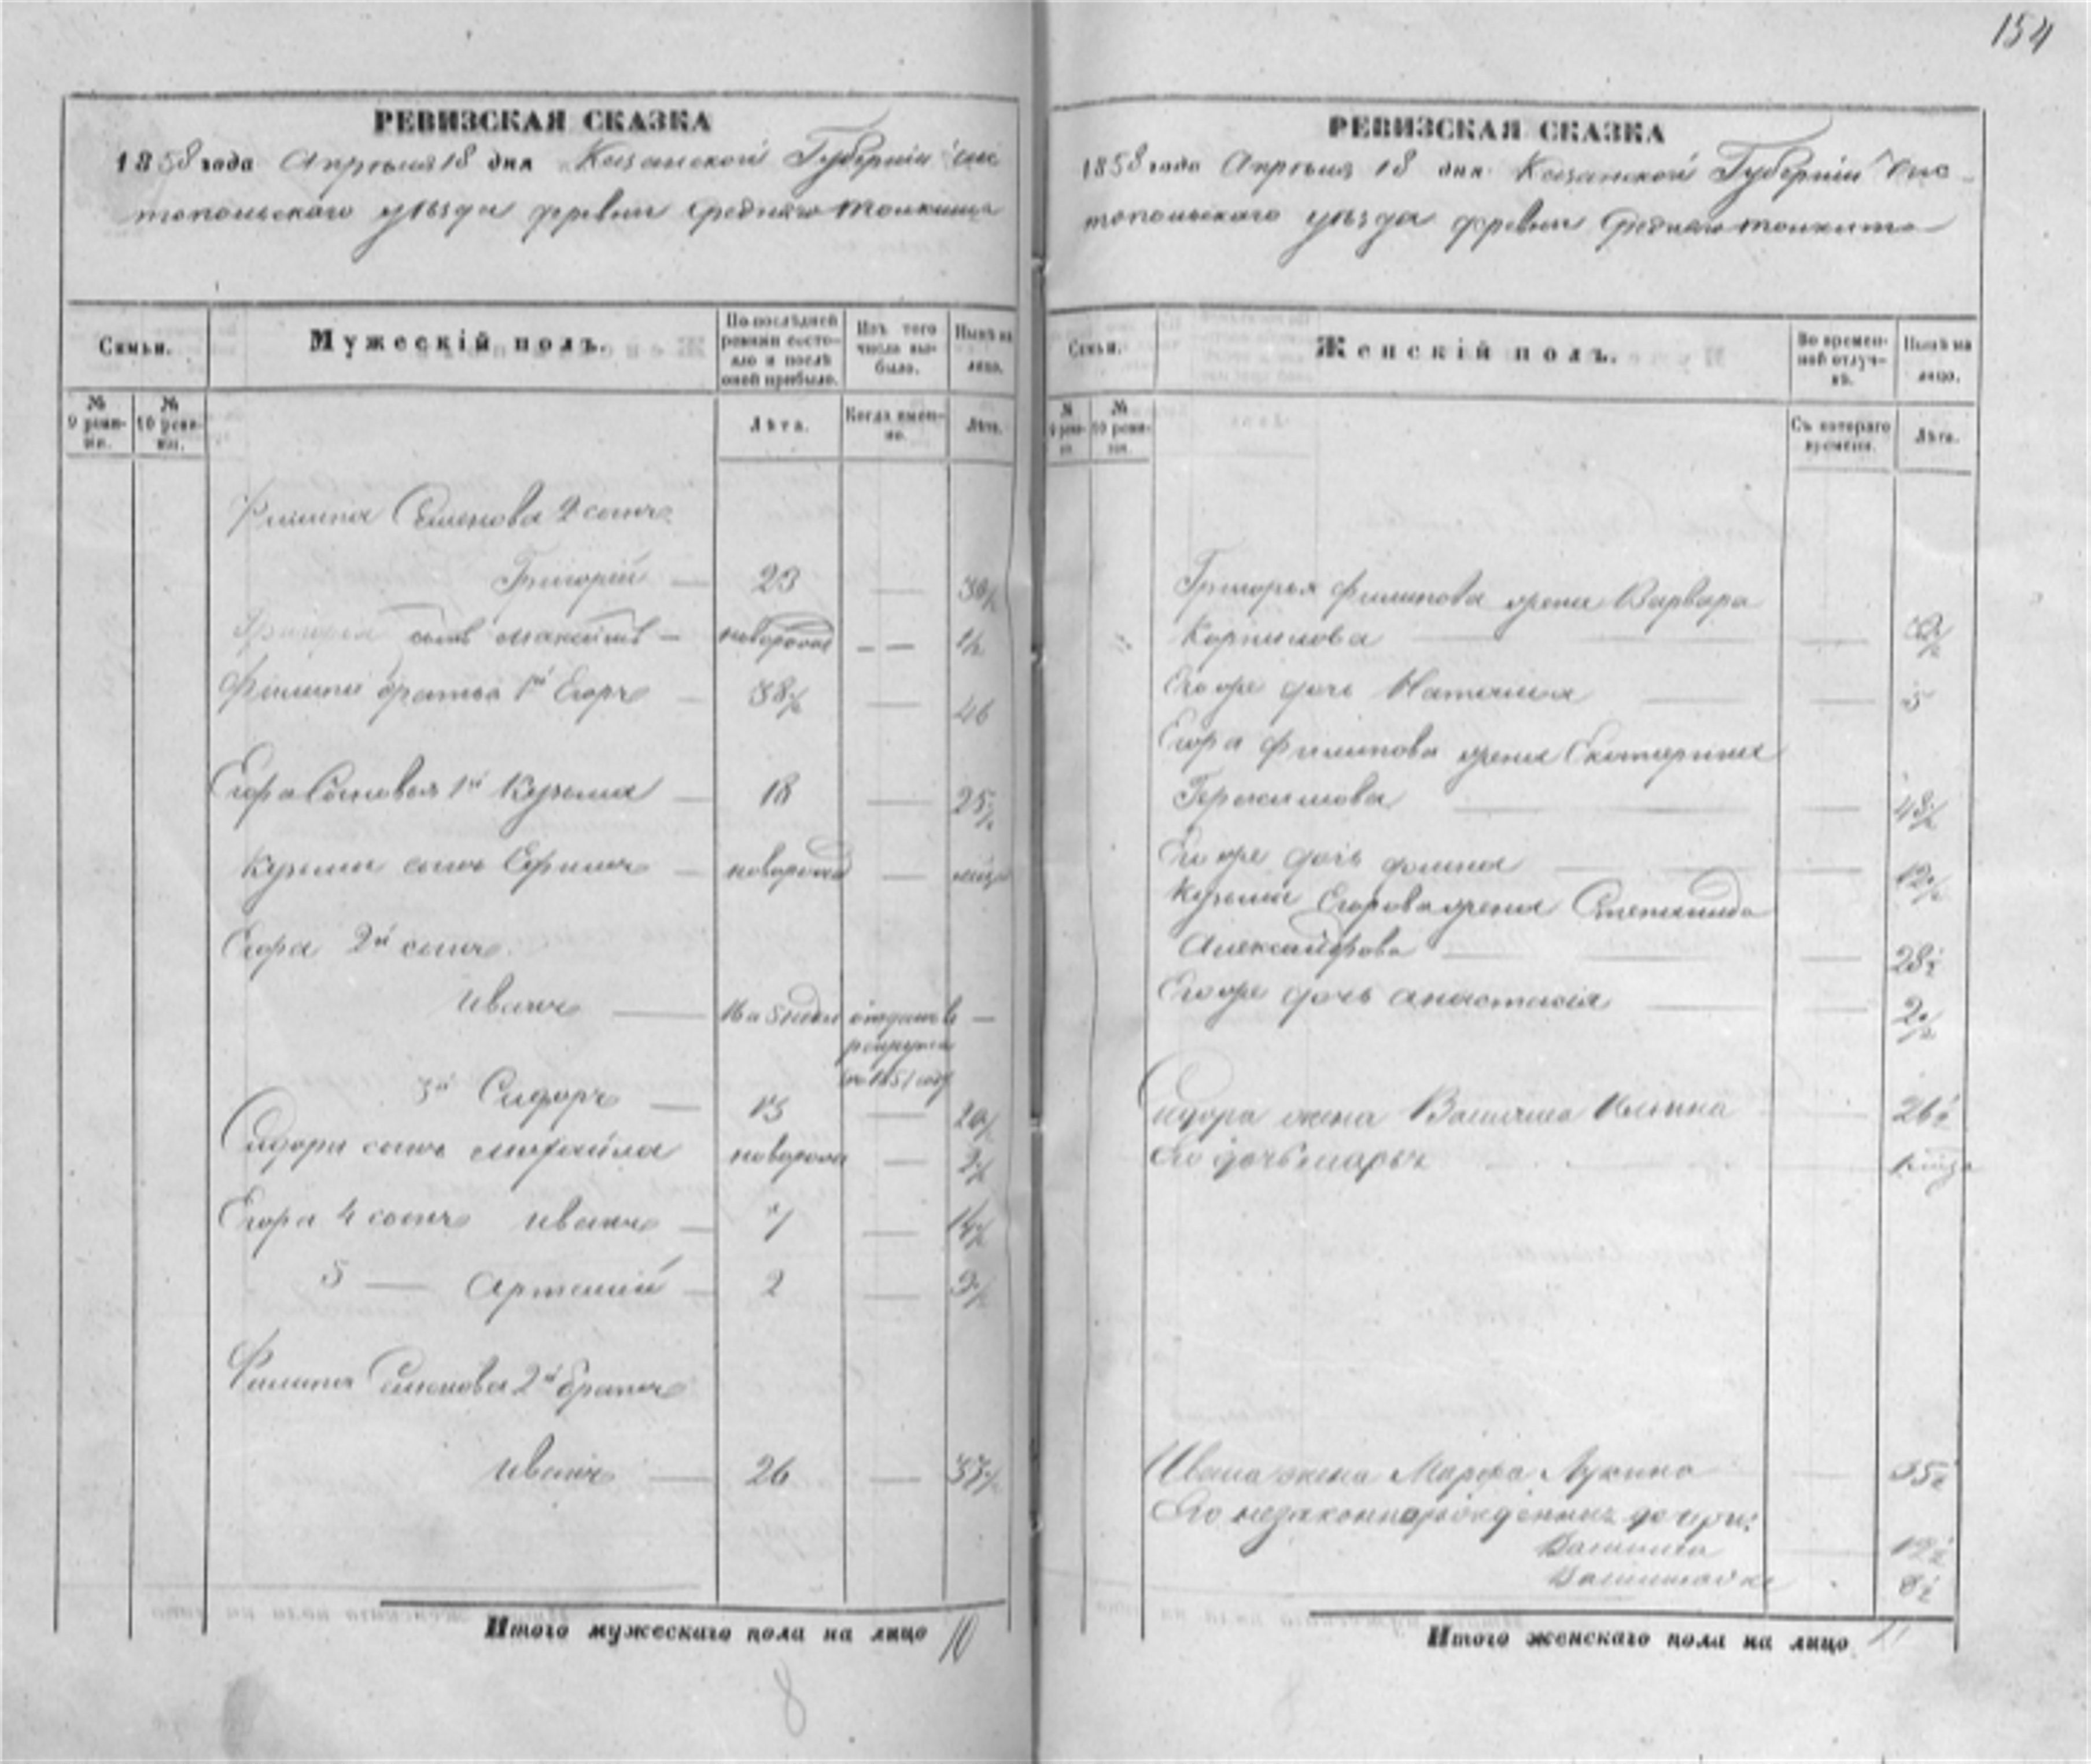 154
РЕВИЗСКАЯ СКАЗКА
1858 года Апреля 18 дня Казанской Губернии Чис
топольскаго уезда деревни Средняго Толкиша
Семьи.
Мужескій полъ.
По последней ревизіи состояло и после оной прибыло.
Изъ того числа выбыло.
Ныне на лицо.
№ 9 ревизіи.
№ 10 ревизіи.
Лета.
Когда именно.
Лета.
Филипа Семенова 2 сынъ
Григорій 23
Григорія сынъ Максимъ новорож 1/2
Филипа братья 1й Егоръ 38½ 46
Егора Сыновья 1й Кузьма 18 25½
Кузьмы сынъ Ефимъ новорож
Егора 2й сынъ
Иванъ отданъ в рекруты в 1851 году
3й Сидоръ 13 20½
Сидора сынъ Михайла новорож 2½
Егора 4 сынъ Иванъ 7 14½
5 Артемій 2 9½
Филипа Семенова 2й братъ
Иванъ 26 33½
Итого мужескаго пола на лицо 10
8
РЕВИЗСКАЯ СКАЗКА
1858 года Апреля 18 дня Казанской Губерніи Чис
топольскаго уезда деревни Средняго Толкиша
Семьи.
Женскій полъ.
Во временной отлучке.
Ныне на лицо.
№ 9 ревизіи.
№ 10 ревизіи.
Съ котораго времени.
Лета.
Григорья Филипова жена Варвара
Корнилова
Его же дочь Наталья 5
Егора Филипова жена Екатерина
Герасимова 48½
Его же дочь Домна 12½
Кузьмы Егорова жена Степанида
Александрова 28½
Его же дочь Анастасія 2½
Сидора жена Василиса Ильина 26½
Его дочь Марья
Ивана жена Марфа Лукина 35½
Его незаконнорожденныя дочери:
12½
8½
Итого женскаго пола на лицо 11